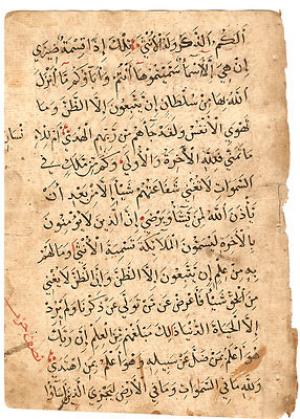 ألكم الذكر وله الأنثى تلك إذا قسمة ضيزى
إن هي إلا أسماء سميتموها أنتم وآباؤكم ما أنزل
الله بها من سلطان إن يتبعون إلا الظن وما
تهوى الأنفس ولقد جاءهم من ربهم الهدى أم للإ نسان
ما تمنى فلله الآخرة والأولى وكم من ملك في
السموات لا تغني شفاعتهم شيئا إلا من بعد أن
يأذن الله لمن يشاء ويرضى إن الذين لا يؤمنون
بالآخرة ليسمون الملائكة تسمية الأنثى وما لهم
به من علم إن يتبعون إلا الظن وإن الظن لا يغني
من الحق شيئا فأعرض عن من تولى عن ذكرنا ولم يرد
إلا الحياة الدنيا ذلك مبلغهم من العلم إن ربك
هو أعلم بمن ضل عن سبيله وهو أعلم بمن اهتدى
ولله ما في السموات وما في الأرض ليجزي الذين أساؤا
نصف حزب